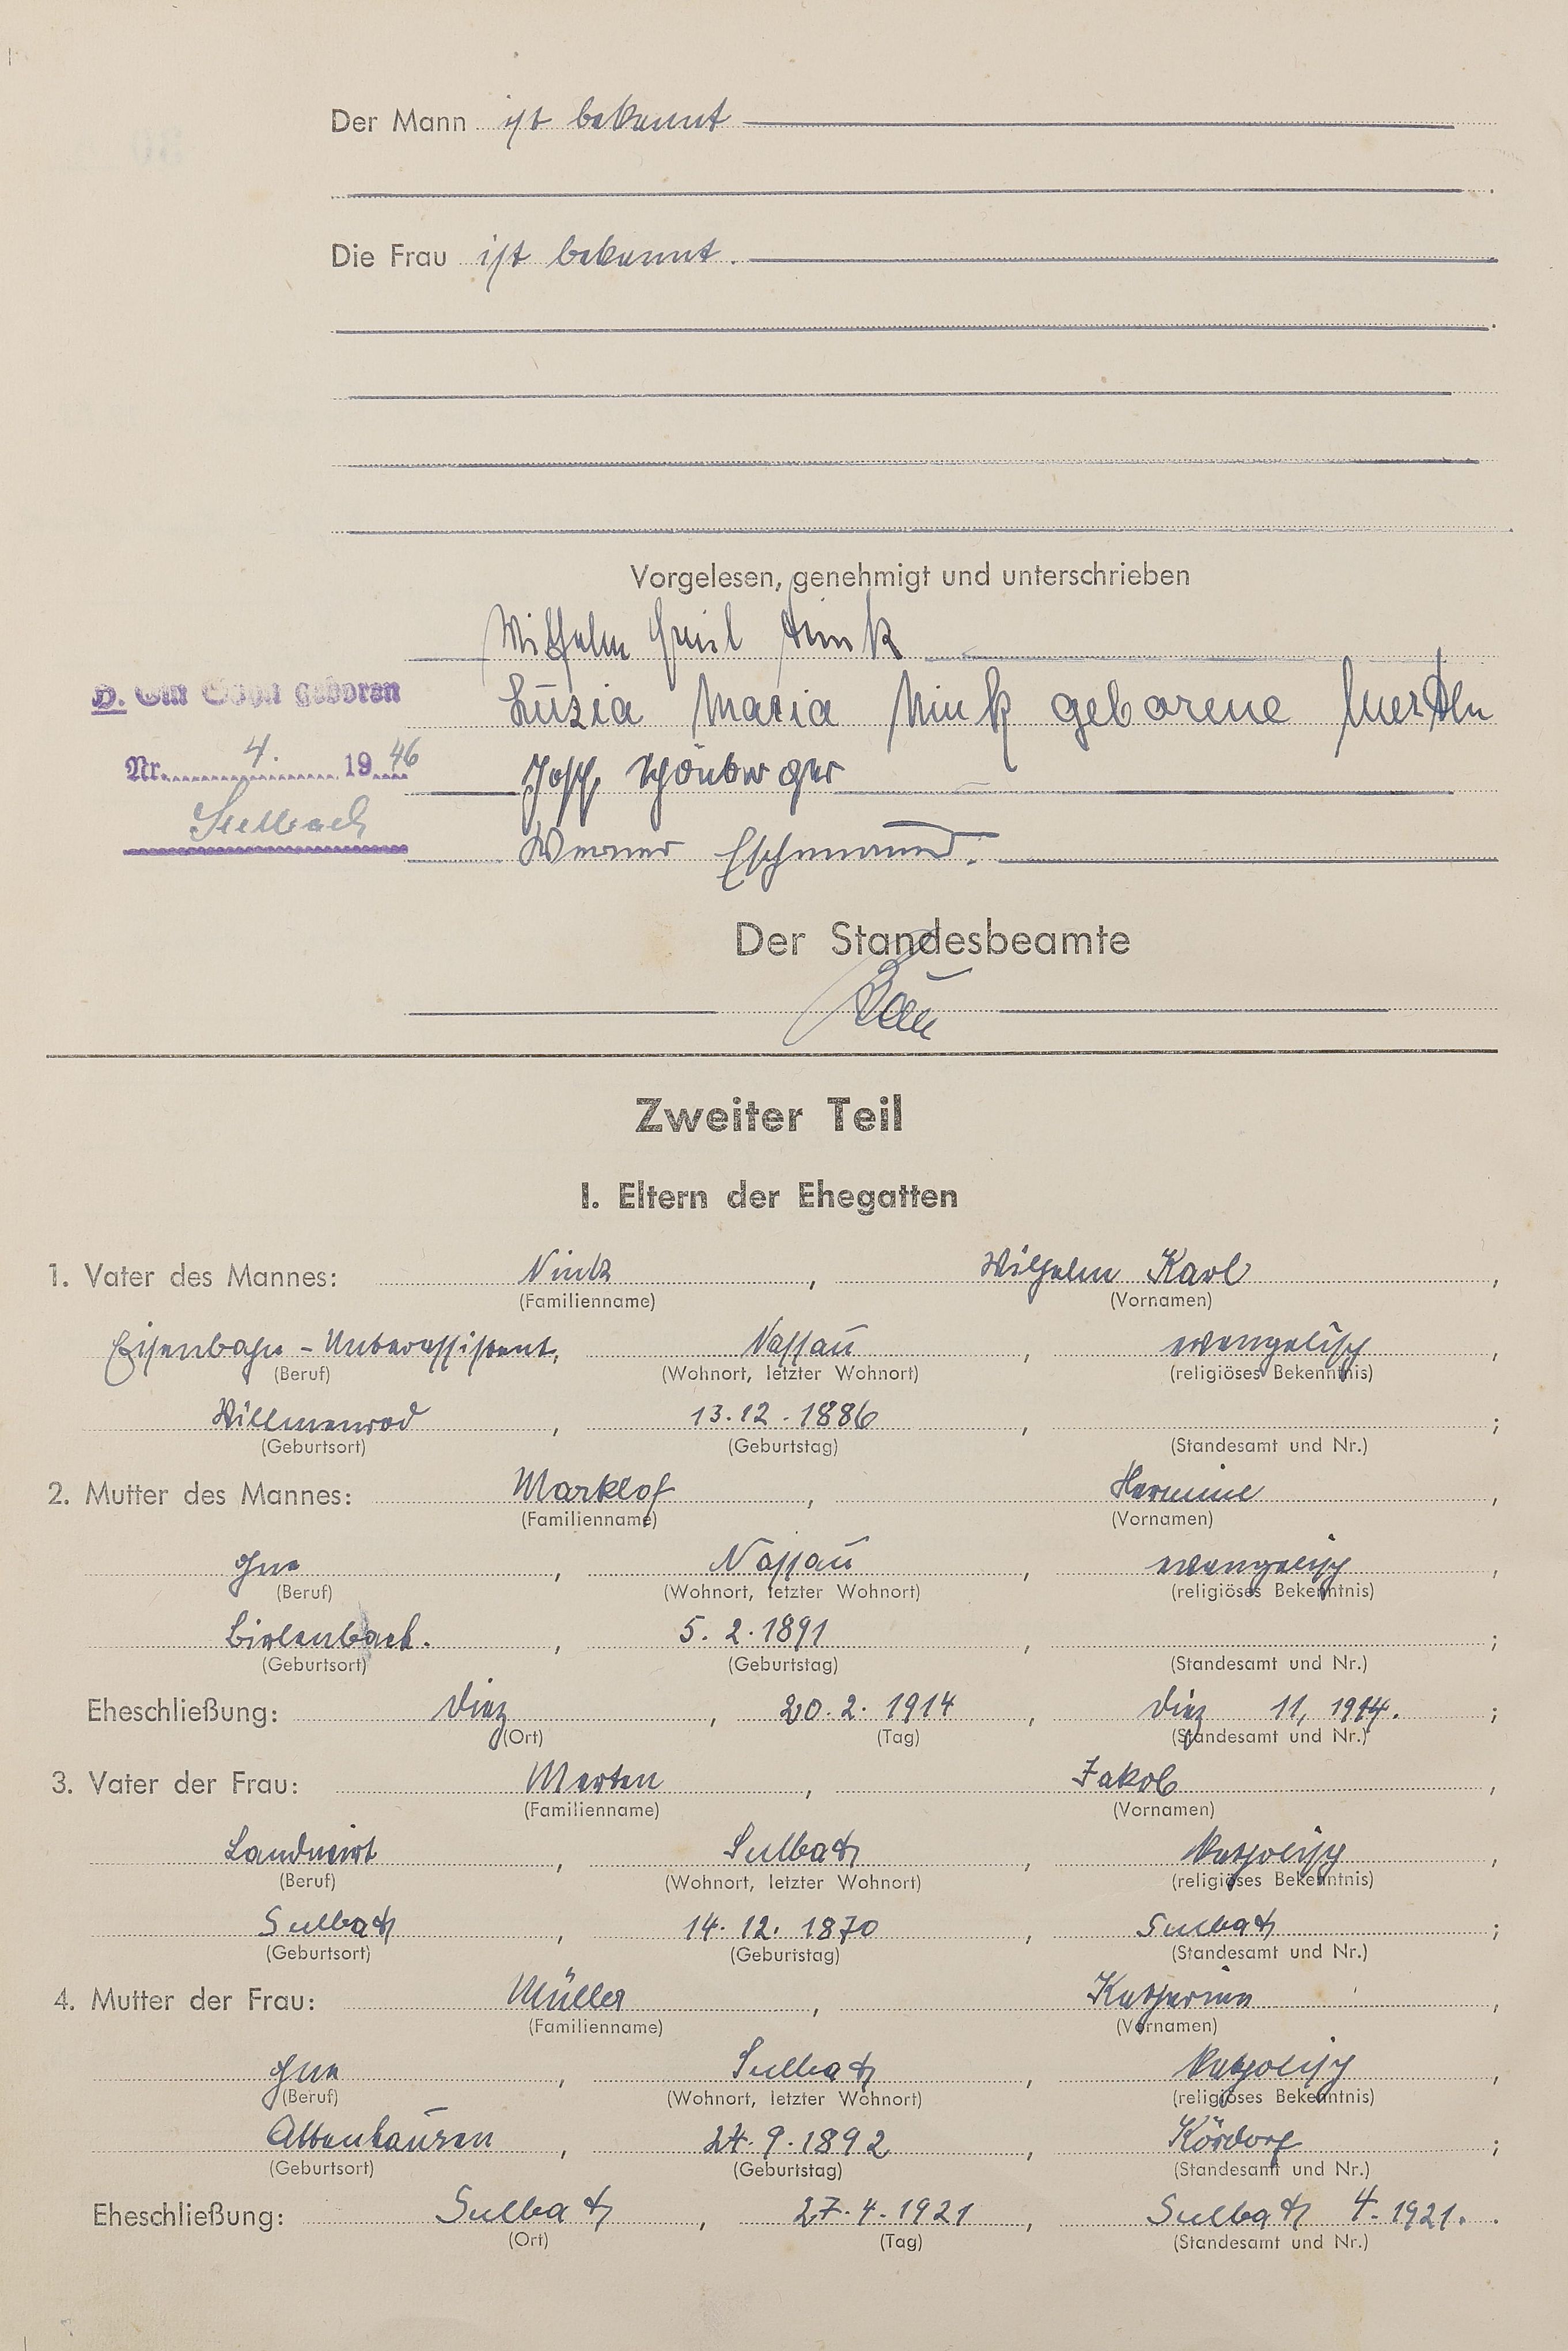 Der Mann ist bekannt
Die Frau ist bekannt.
Vorgelesen, genehmigt und unterschrieben
Wilhelm Nink
H. Ein Sohn geboren
Luzia Maria Nink geborene Merten
Nr. 4. 1946
Josef Schönberger
Sulbach
Werner Eschmann.
Der Standesbeamte
Zweiter Teil
I. Eltern der Ehegatten
1. Vater des Mannes: Nink, Wilhelm Karl,
(Familienname) (Vornamen)
Eisenbahn-Unterassistent, Nassau, evangelisch,
(Beruf) (Wohnort, letzter Wohnort) (religiöses Bekenntnis)
Willmenrod, 13.12.1886, ;
(Geburtsort) (Geburtstag) (Standesamt und Nr.)
2. Mutter des Mannes: Marklof, Hermine,
(Familienname) (Vornamen)
ohne, Nassau, evangelisch,
(Beruf) (Wohnort, letzter Wohnort) (religiöses Bekenntnis)
Birlenbach., 5.2.1891, ;
(Geburtsort) (Geburtstag) (Standesamt und Nr.)
Eheschließung: Diez, 20.2.1914, Diez 11, 1914. ;
(Ort) (Tag) (Standesamt und Nr.)
3. Vater der Frau: Merten, Jakob,
(Familienname) (Vornamen)
Landwirt, Sulbach, katholisch,
(Beruf) (Wohnort, letzter Wohnort) (religiöses Bekenntnis)
Sulbach, 14.12.1870, Sulbach;
(Geburtsort) (Geburtstag) (Standesamt und Nr.)
4. Mutter der Frau: Müller, Katharina,
(Familienname) (Vornamen)
ohne, Sulbach, katholisch,
(Beruf) (Wohnort, letzter Wohnort) (religiöses Bekenntnis)
Attenhausen, 24.9.1892, Kördorf;
(Geburtsort) (Geburtstag) (Standesamt und Nr.)
Eheschließung: Sulbach, 27.4.1921, Sulbach 4.1921.
(Ort) (Tag) (Standesamt und Nr.)